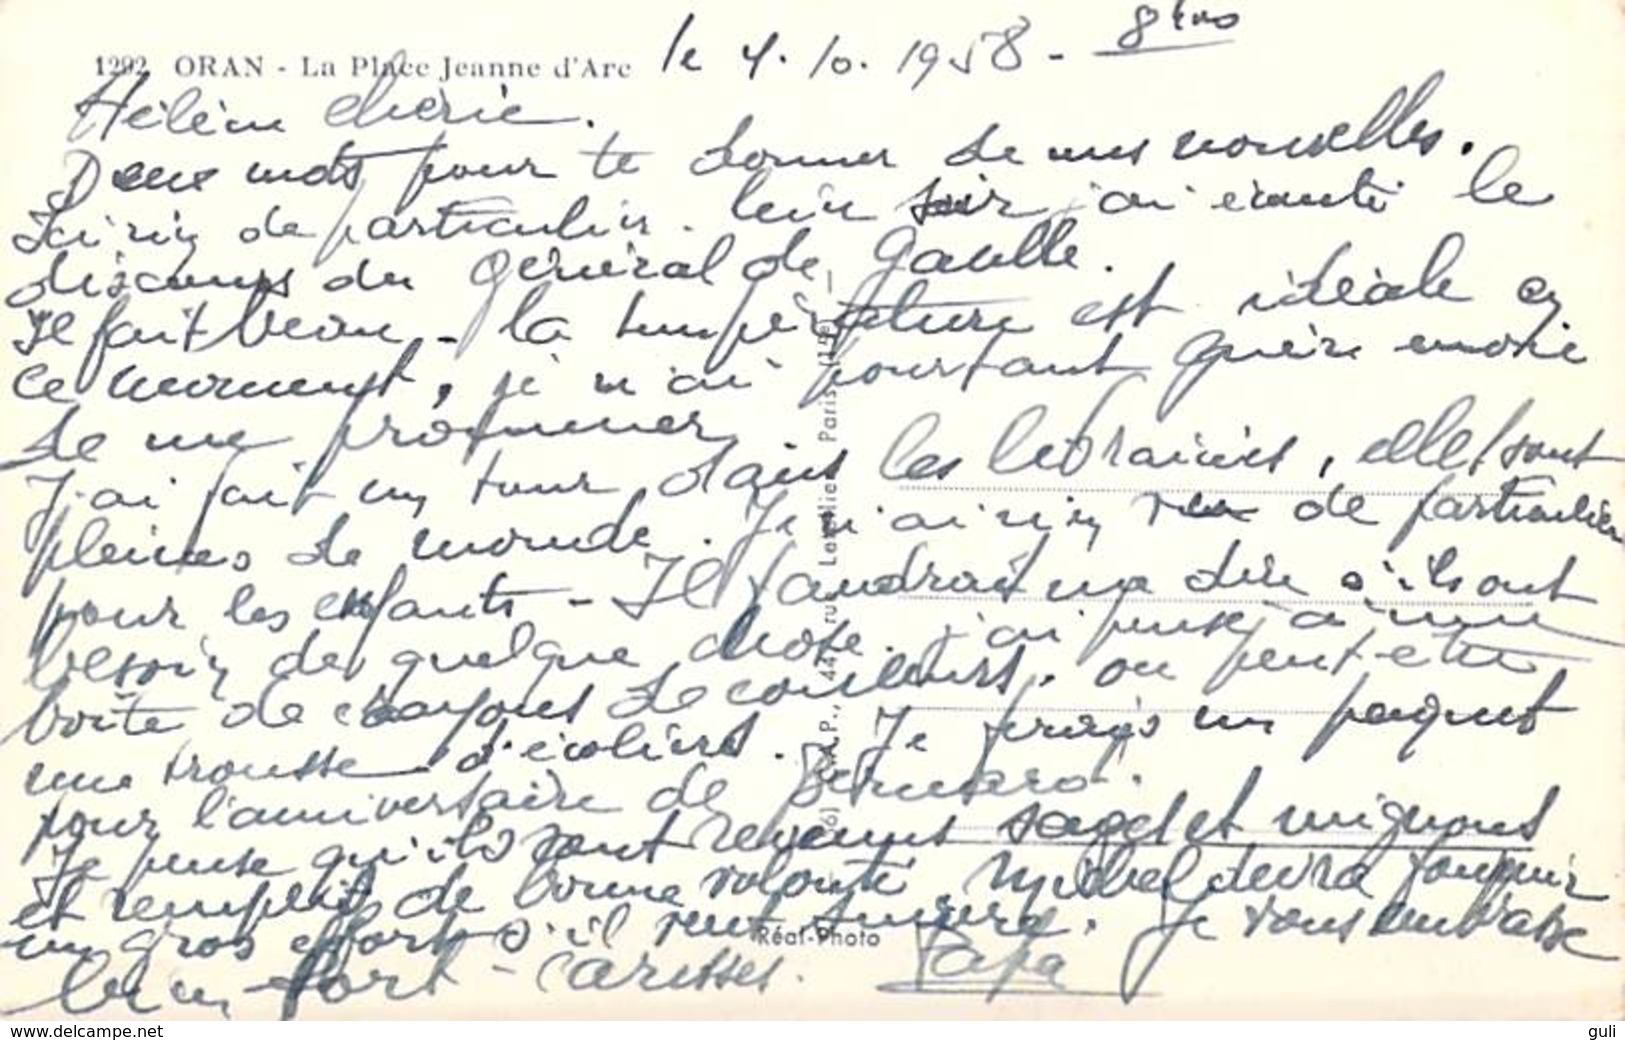 1292 ORAN - La Place Jeanne d'Arc le 4.10.1958 - 8ème
Hélène chérie.
Deux mots pour te donner de mes nouvelles.
Ici rien de particulier. hier soir j'ai écouté le
discours du Général de Gaulle.
Il fait beau - la température est idéale en
ce moment, je n'ai pourtant guère envie
de me promener.
J'ai fait un tour dans les librairies, elles sont
pleines de monde. Je n'ai rien vu de particulier
pour les enfants - Il faudrait me dire s'ils ont
besoin de quelque chose. j'ai pensé à une
boîte de crayons de couleurs, ou peut-être
une trousse d'écoliers. Je ferais un paquet
pour l'anniversaire de
Je pense qu'ils sont revenus sages et mignons
et remplis de bonne volonté. Michel devra fournir
un gros effort s'il veut suivre. Je vous embrasse
bien fort - Caresses. Papa
Réal-Photo
A.P., 44, rue Letellier, Paris (15e)
www.delcampe.net
guli